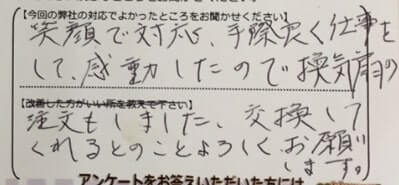 【今回の弊社の対応でよかったところをお聞かせください】
笑顔で対応、手際良く仕事を
して、感動したので換気扇の
【改善した方がいい所を教えて下さい】
注文もしました、交換して
くれるとのことよろしくお願い
します。
アンケートをお答えいただいた方には